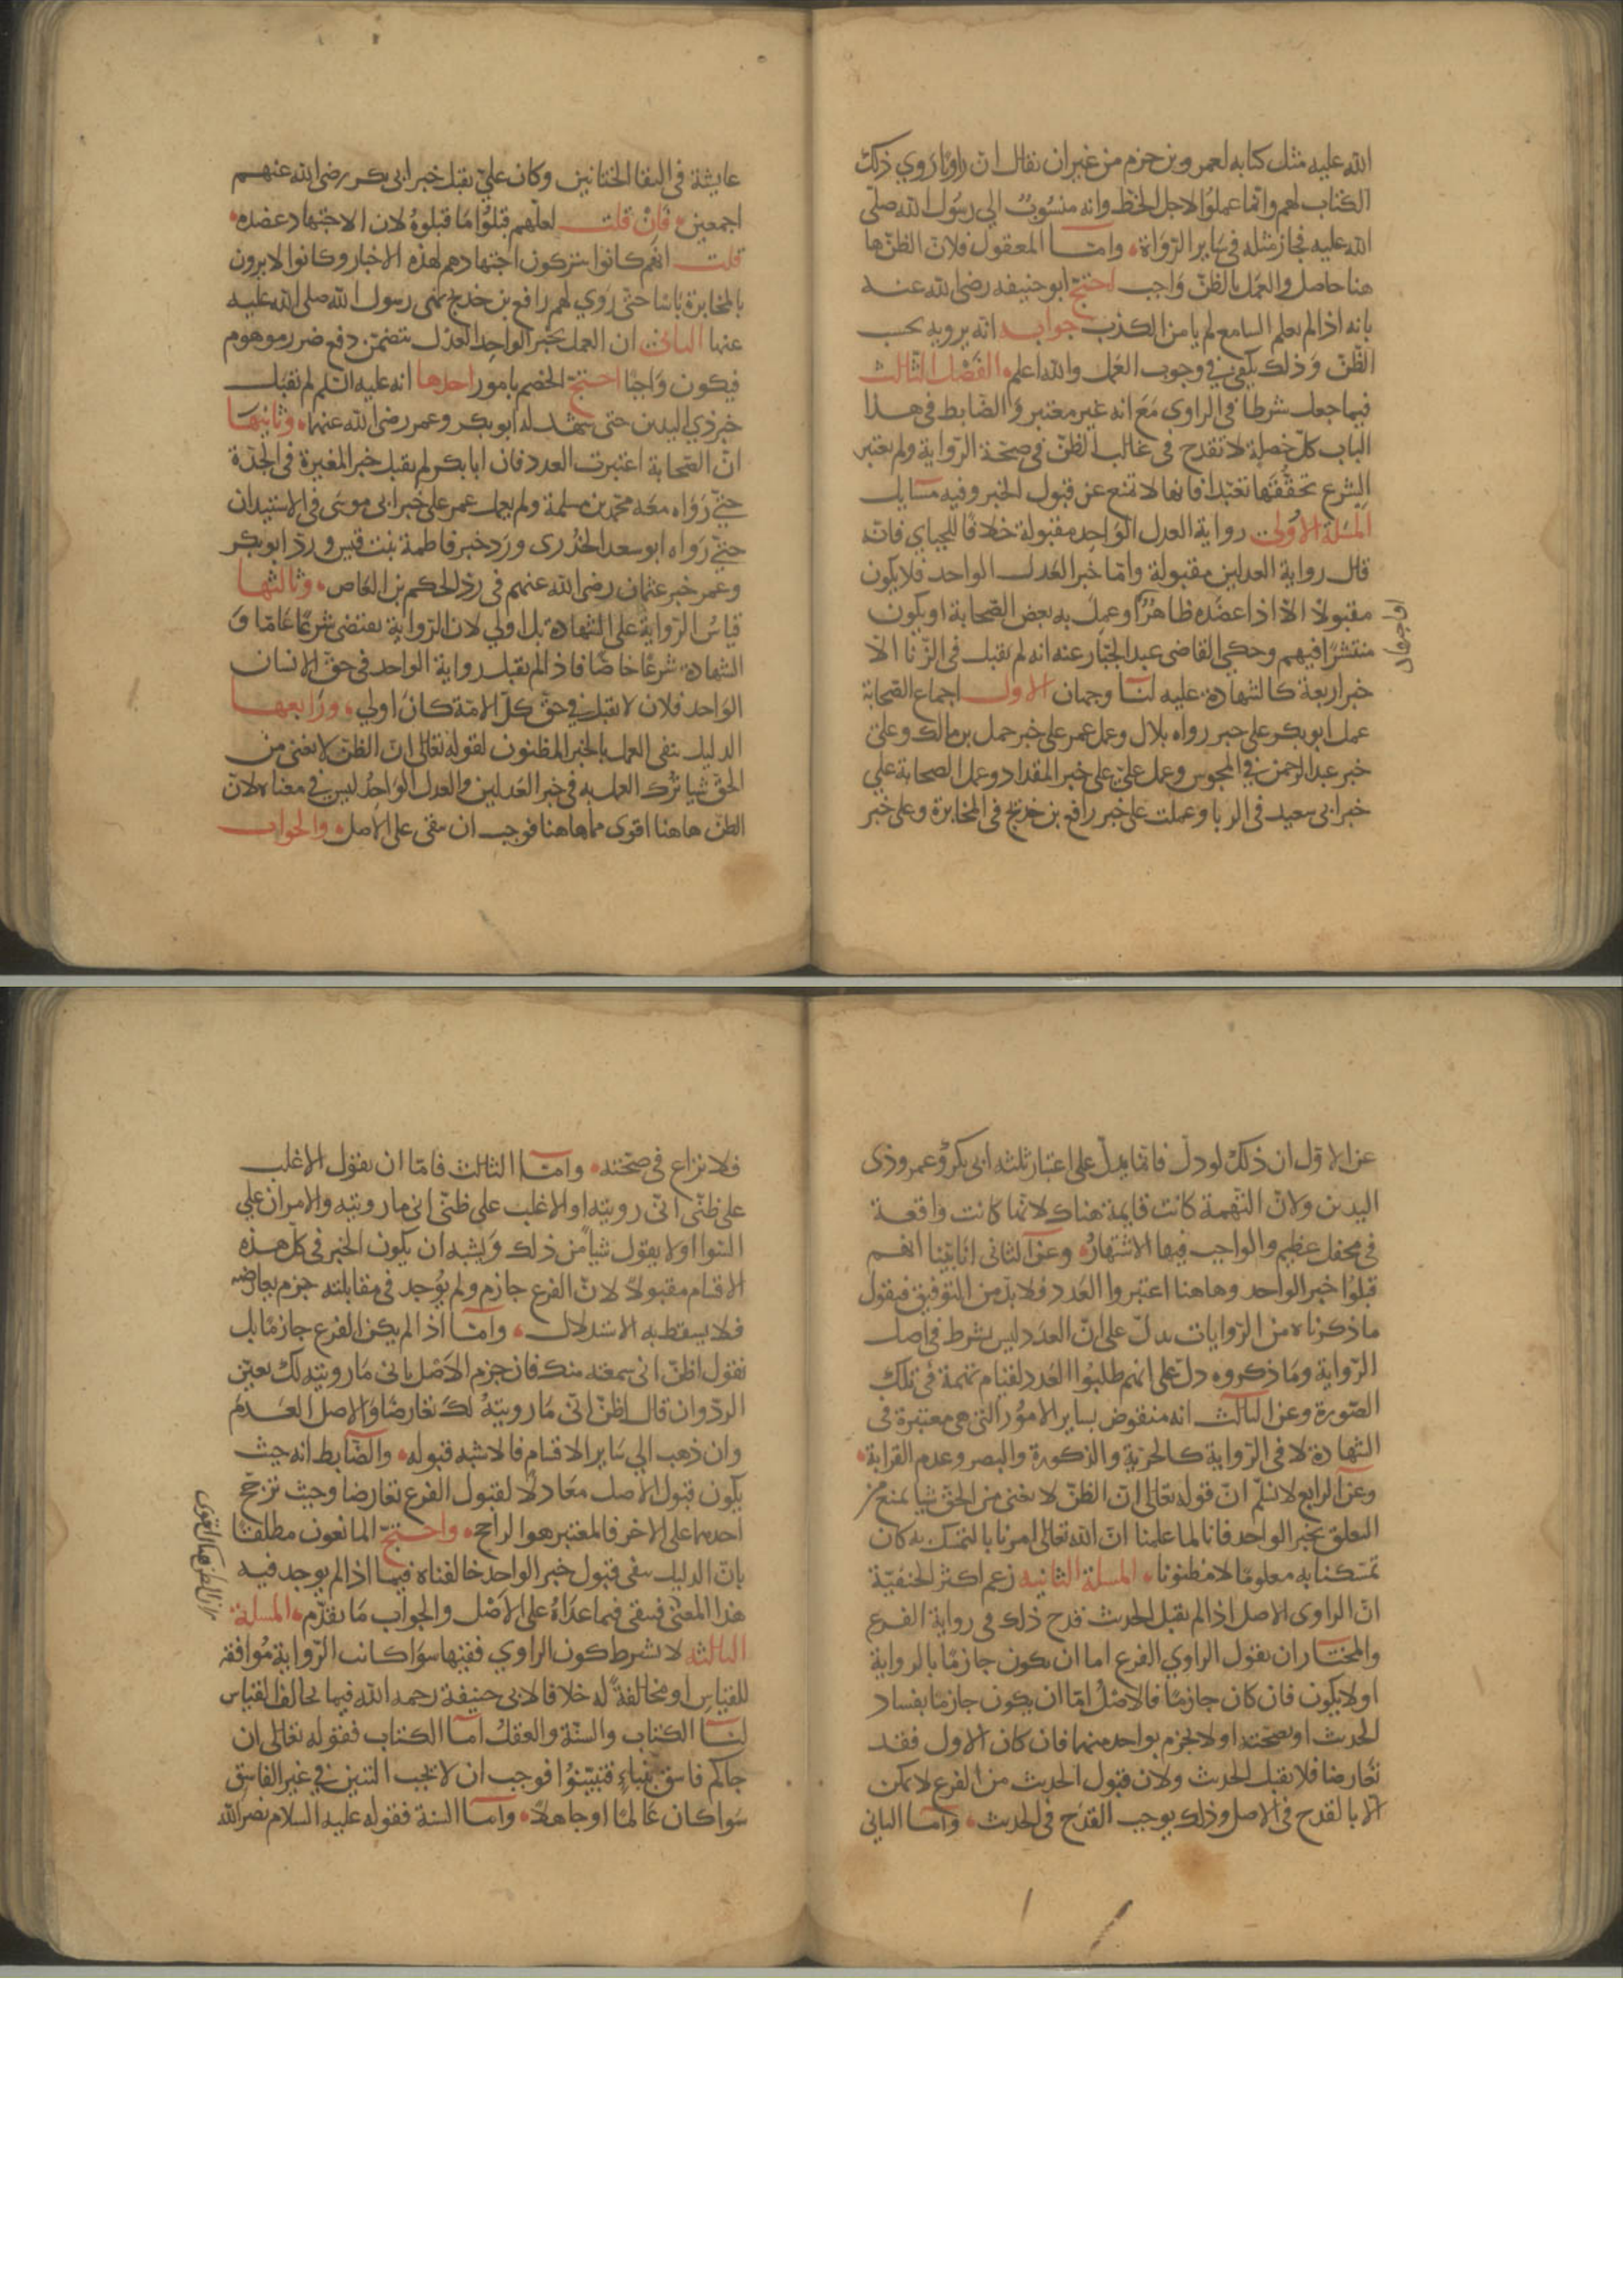 الله عليه مثل كتابه لعمرو بن حزم من غير ان يقال ان راويا روي ذلك
الكتاب لهم وانما عملوا لاجل الخط وانه منسوب الي رسول الله صلى
الله عليه فجاز مثله في ساير الرواة وامـا المعقول فلان الظن ها
هنا حاصل والعمل بالظن واجب احتج ابو حنيفه رضي الله عنه
بانه اذا لم يعلم السامع لم يامن الكذب جوابه انه يرويه بحسب
الظن وذلك يكفي في وجوب العمل والله اعلم الفصل الثالث
فيما جعل شرطا في الراوي مع انه غير معتبر والضابط في هذا
الباب كل خصلة لا تقدح في غالب الظن في صحة الرواية ولم يعتبر
الشرع تحققها تعبدا فانها لا تمنع عن قبول الخبر وفيه مسايل
المسلة الاولى رواية العدل الواحد مقبولة خلافا للجباي فانه
قال رواية العدلين مقبولة واما خبر العدل الواحد فلا يكون
مقبولا الا اذا عضده ظاهر او عمل به بعض الصحابة او يكون
منتشرا فيهم وحكي القاضي عبد الجبار عنه انه لم يقبل في الزنا الا
خبر اربعة كالشهادة عليه لنا وجهان الاول اجماع الصحابة
عمل ابو بكر على خبر رواه بلال وعمل عمر على خبر حمل بن مالك وعلى
خبر عبد الرحمن في المجوس وعمل علي على خبر المقداد وعمل الصحابة علي
خبر ابي سعيد في الربا وعملت على خبر رافع بن خديج في المخابرة وعلى خبر
عايشة في التقا الختانين وكان علي يقبل خبر ابي بكر رضي الله عنهم
اجمعين فان قلت لعلهم قبلوا ما قبلوه لان الاجتهاد عضده
قلت انهم كانوا يتركون اجتهادهم لهذه الاخبار وكانوا لا يرون
بالمخابرة باسا حتى روي لهم رافع بن خديج نهى رسول الله صلى الله عليه
عنها الثاني ان العمل بخبر الواحد العدل يتضمن دفع ضرر موهوم
فيكون واجبا احتج الخصم بامور احدها انه عليه السلم لم يقبل
خبر ذي اليدين حتى شهد له ابو بكر وعمر رضي الله عنهما وثانيها
ان الصحابة اعتبرت العدد فان ابا بكر لم يقبل خبر المغيرة في الجدة
حتي رواه معه محمد بن مسلمة ولم يعمل عمر على خبر ابي موسى في الاستيذان
حتي رواه ابو سعد الخدري ورد خبر فاطمة بنت قيس ورد ابو بكر
وعمر خبر عثمان رضي الله عنهم في رد الحكم بن العاص وثالثها
قياس الرواية على الشهادة بل اولي لان الرواية تقتضي شرعا عاما و
الشهادة شرعا خاصا فاذا لم يقبل رواية الواحد في حق الانسان
الواحد فلان لا تقبل في حق كل الامة كان اولي ورابعها
الدليل ينفي العمل بالخبر المظنون لقوله تعالى ان الظن لا يغني من
الحق شيا ترك العمل به في خبر العدلين والعدل الواحد ليس في معناه لان
الظن هاهنا اقوى مما هاهنا فوجب ان يبقى على الاصل والجواب
عن الاول ان ذلك لو دل فانما يدل على اعتبار ثلثة ابي بكر وعمر وذي
اليدين ولان التهمة كانت قايمة هناك لانها كانت واقعة
في محفل عظيم والواجب فيها الاشتهار وعن الثاني انا بينا انهم
قبلوا خبر الواحد وهاهنا اعتبروا العدد فلا بد من التوفيق فيقول
ما ذكرناه من الروايات يدل على ان العدد ليس بشرط في اصل
الرواية وما ذكروه دل على انهم طلبوا العدد لقيام تهمة في تلك
الصورة وعن الثالث انه منقوض بساير الامور التي هي معتبرة في
الشهادة لا في الرواية كالحرية والذكورة والبصر وعدم القرابة
وعن الرابع لا نسلم ان قوله تعالى ان الظن لا يغني من الحق شيا يمنع من
التعلق بخبر الواحد فانا لما علمنا ان الله تعالى امرنا بالتمسك به كان
تمسكنا به معلوما لا مظنونا المسلة الثانية زعم اكثر الحنفية
ان الراوي الاصل اذا لم يقبل الحديث قدح ذلك في رواية الفرع
والمختار ان نقول الراوي الفرع اما ان يكون جازما بالرواية
او لا يكون فان كان جازما فالاصل اما ان يكون جازما بفساد
الحديث او بصحته او لا يجزم بواحد منهما فان كان الاول فقد
تعارضا فلا يقبل الحديث ولان قبول الحديث من الفرع لا يمكن
الا بالقدح في الاصل وذلك يوجب القدح في الحديث وامـا الثاني
فلا نزاع في صحته وامـا الثالث فاما ان يقول الاغلب
على ظني اني رويته او الاغلب على ظني اني ما رويته والامران علي
السوا او لا يقول شيا من ذلك ويشبه ان يكون الخبر في كل هذه
الاقسام مقبولا لان الفرع جازم ولم يوجد في مقابلته جزم يعارضه
فلا يسقط به الاستدلال وامـا اذا لم يكن الفرع جازما بل
يقول اظن اني سمعته منك فان جزم الاصل باني ما رويته لك تعين
الرد وان قال اظن اني ما رويته لك تعارضا والاصل العدم
وان ذهب الي ساير الاقسام فالاشبه قبوله والضابط انه حيث
يكون قبول الاصل معادلا لقبول الفرع تعارضا وحيث ترجح
احدهما على الاخر فالمعتبر هو الراجح واحتج المانعون مطلقا
بان الدليل ينفي قبول خبر الواحد خالفناه فيما اذا لم يوجد فيه
هذا المعنى فيبقى فيما عداه على الاصل والجواب ما تقدم المسلة
الثالثة لا يشرط كون الراوي فقيها سوا كانت الرواية موافقة
للقياس او مخالفة له خلافا لابي حنيفة رحمه الله فيما يخالف القياس
لنـا الكتاب والسنة والعقل امـا الكتاب فقوله تعالى ان
جاكم فاسق بنباء فتبينوا فوجب ان لا يجب التبين في غير الفاسق
سوا كان عالما او جاهلا وامـا السنة فقوله عليه السلام نضر الله